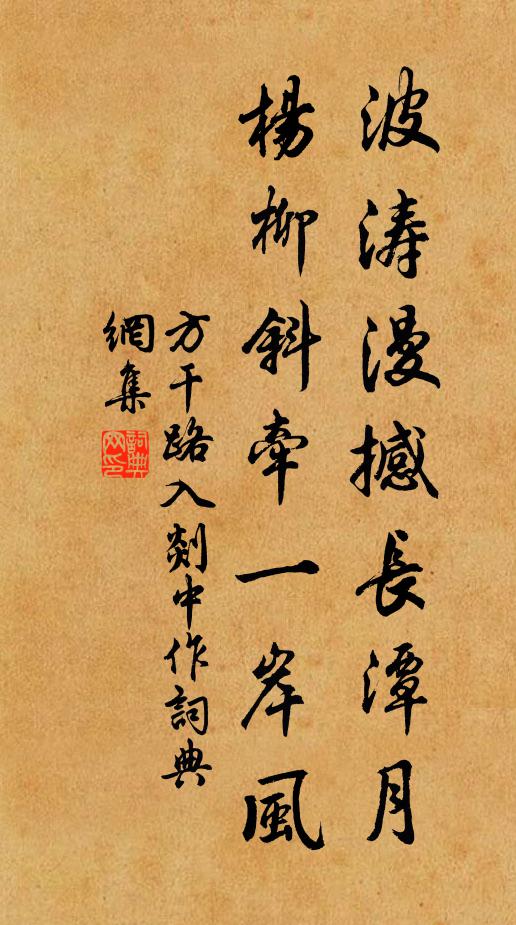 波濤漫撼長潭月
楊柳斜牽一岸風
方干路入剡中作詞典
網集
詞典
网印